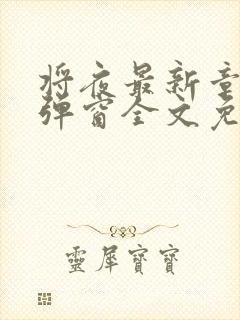 将夜最新章
弹窗全文免
靈犀寶寶